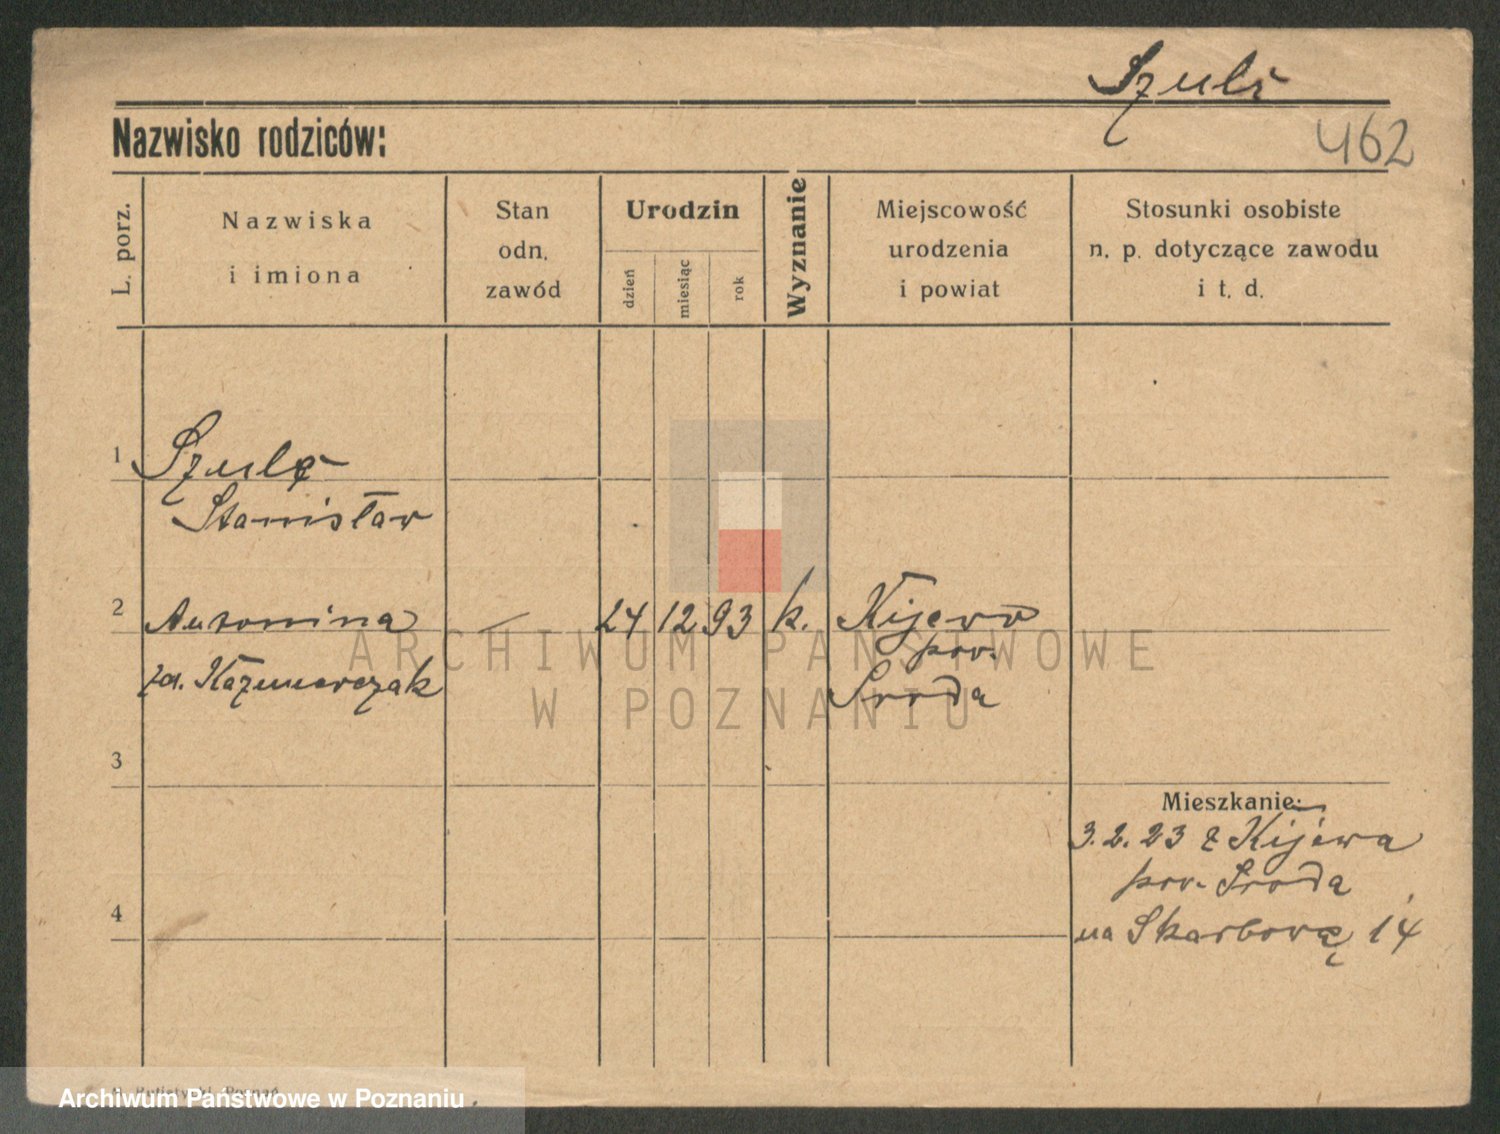 Szulz
Nazwisko rodziców:
462
L. porz.
Nazwiska
i imiona
Stan
odn.
zawód
Urodzin
dzień
miesiąc
rok
Wyznanie
Miejscowość
urodzenia
i powiat
Stosunki osobiste
n. p. dotyczące zawodu
i t. d.
1 Szulz
Stanisław
2 Antonina — 24 12 93 k. Kijewo
pow.
Środa
za. Kaźmierczak
3
Mieszkanie:
3. 2. 23 z Kijewa
pow. Środa
4
na Skarbową 14
ARCHIWUM PAŃSTWOWE
W POZNANIU
Poznań
Archiwum Państwowe w Poznaniu